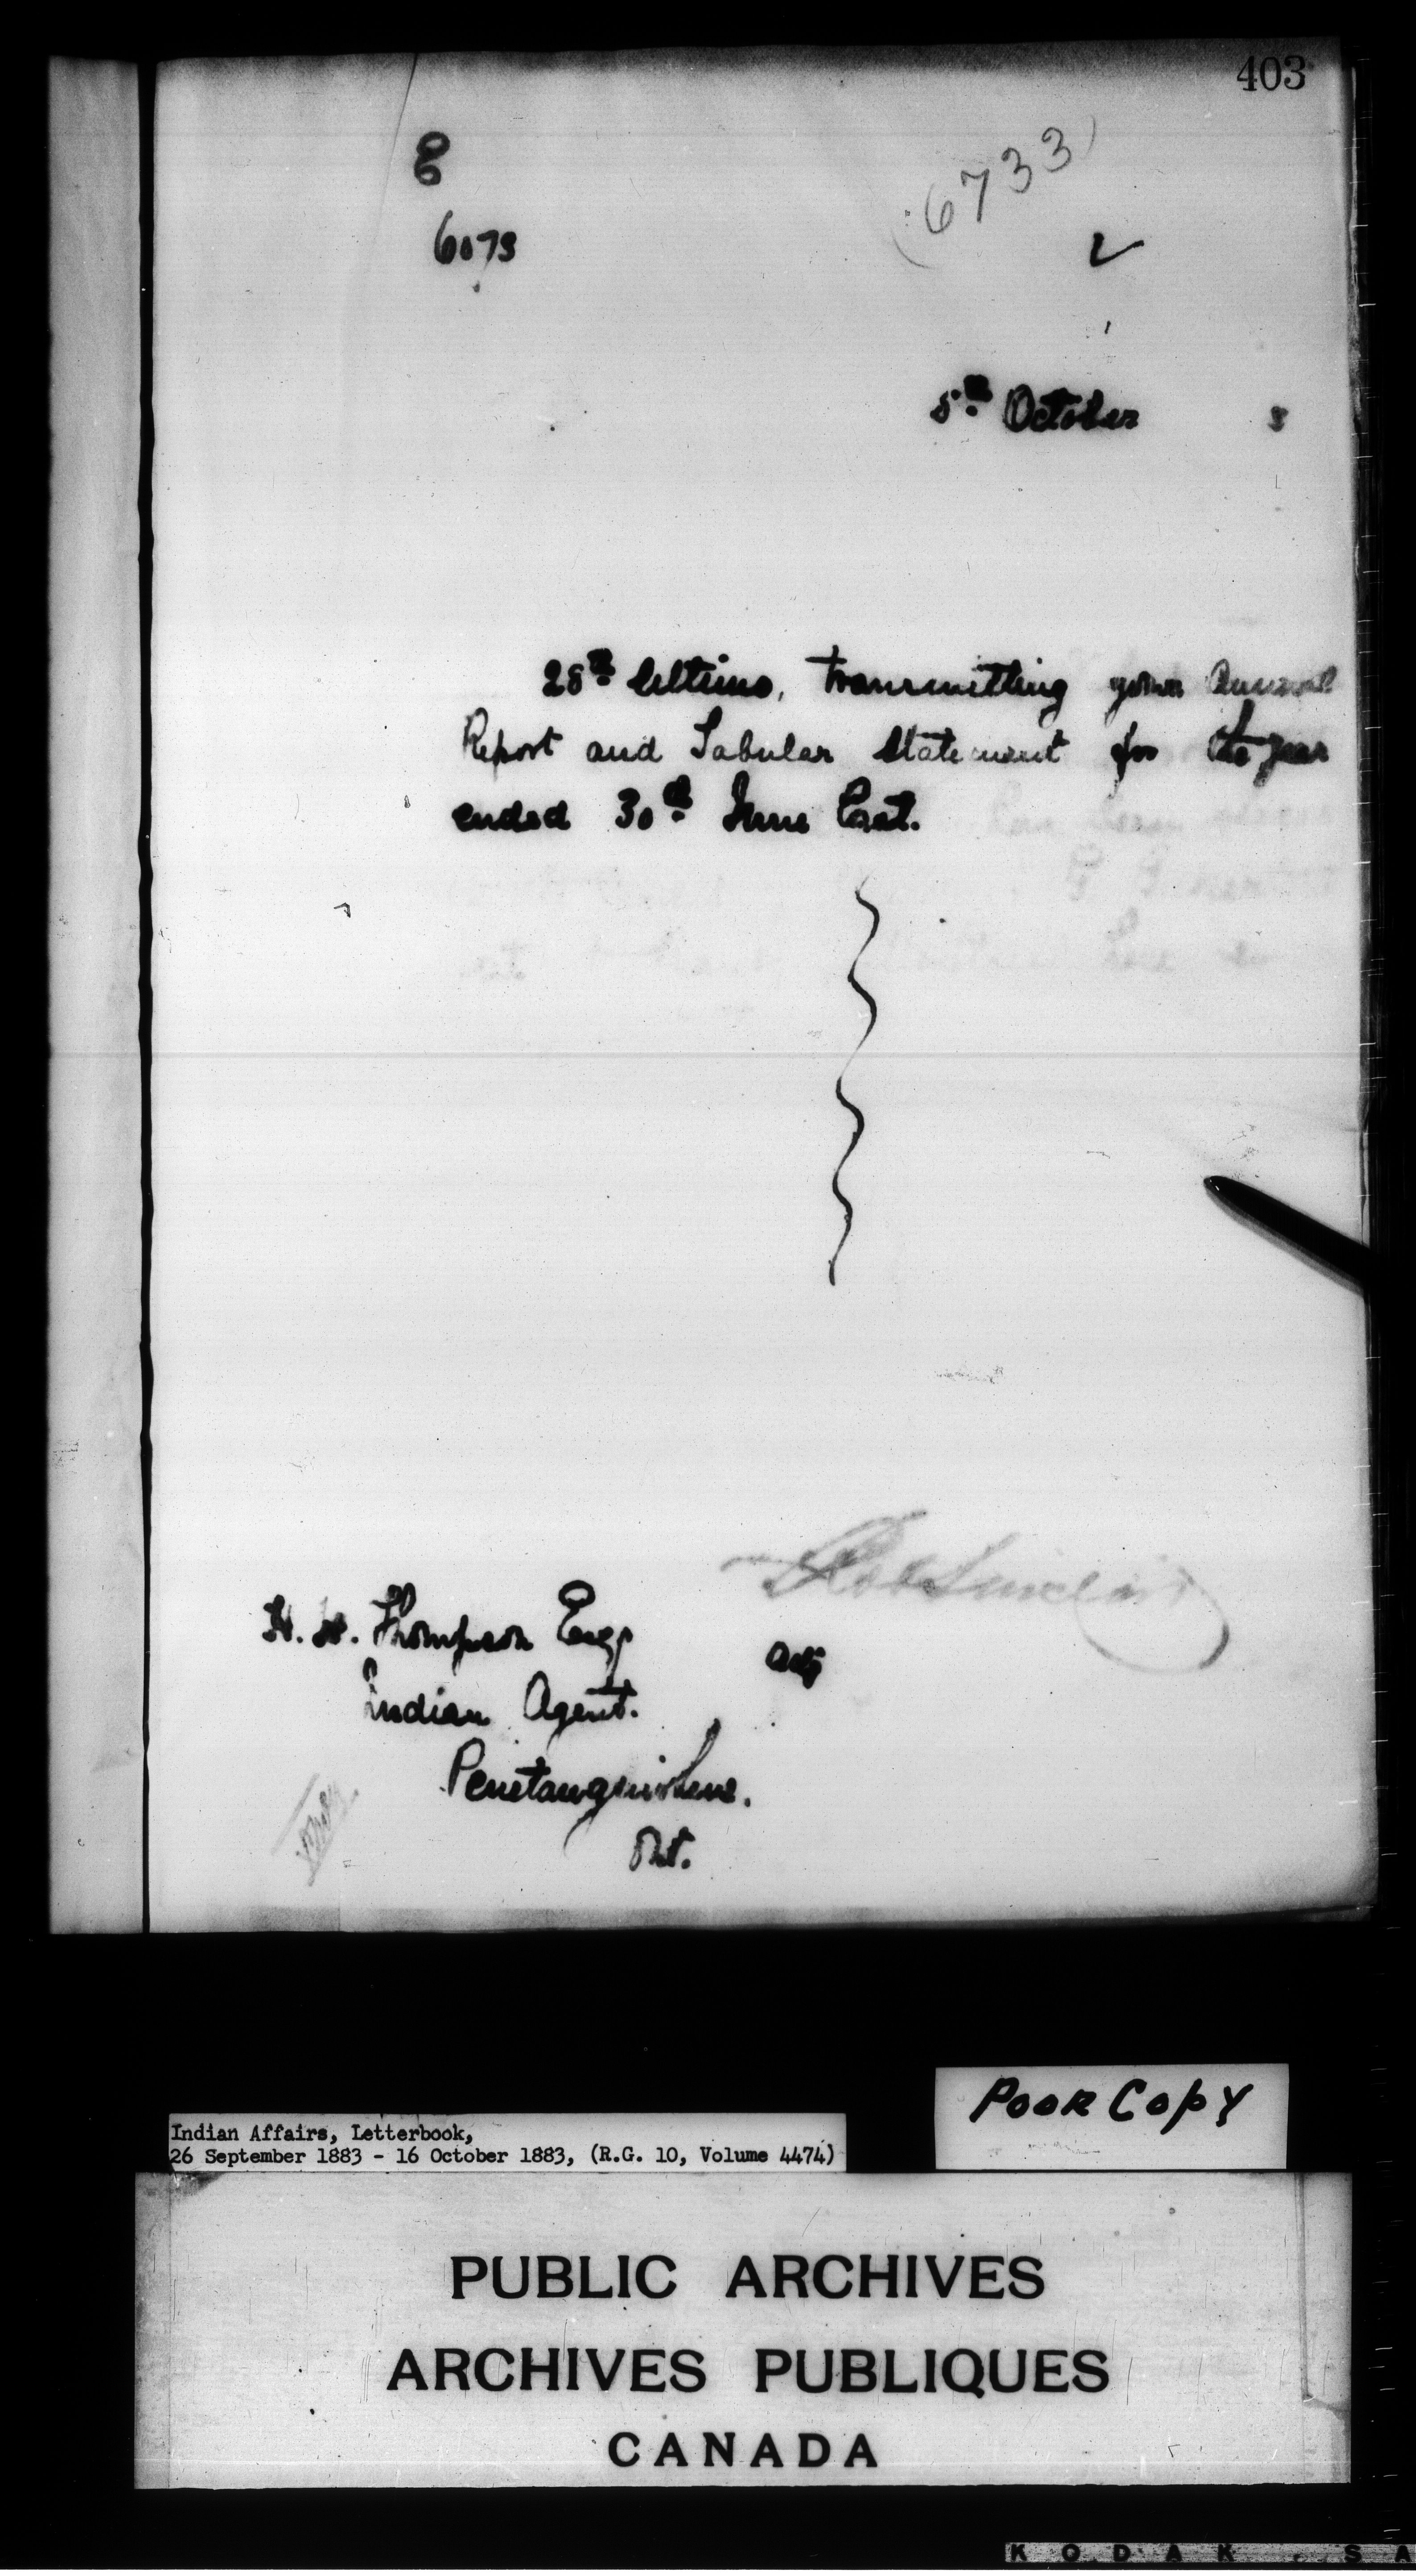 403
6733
6073
5th October 3
28th Ultimo, transmitting your Annual
Report and Tabular Statement for the year
ended 30th June last.
Rob Sinclair
H. H. Thompson Esqr
Indian Agent.
Penetanguishene.
Ont.
POOR COPY
Indian Affairs, Letterbook,
26 September 1883 - 16 October 1883, (R.G. 10, Volume 4474)
PUBLIC ARCHIVES
ARCHIVES PUBLIQUES
CANADA
KODAK SA